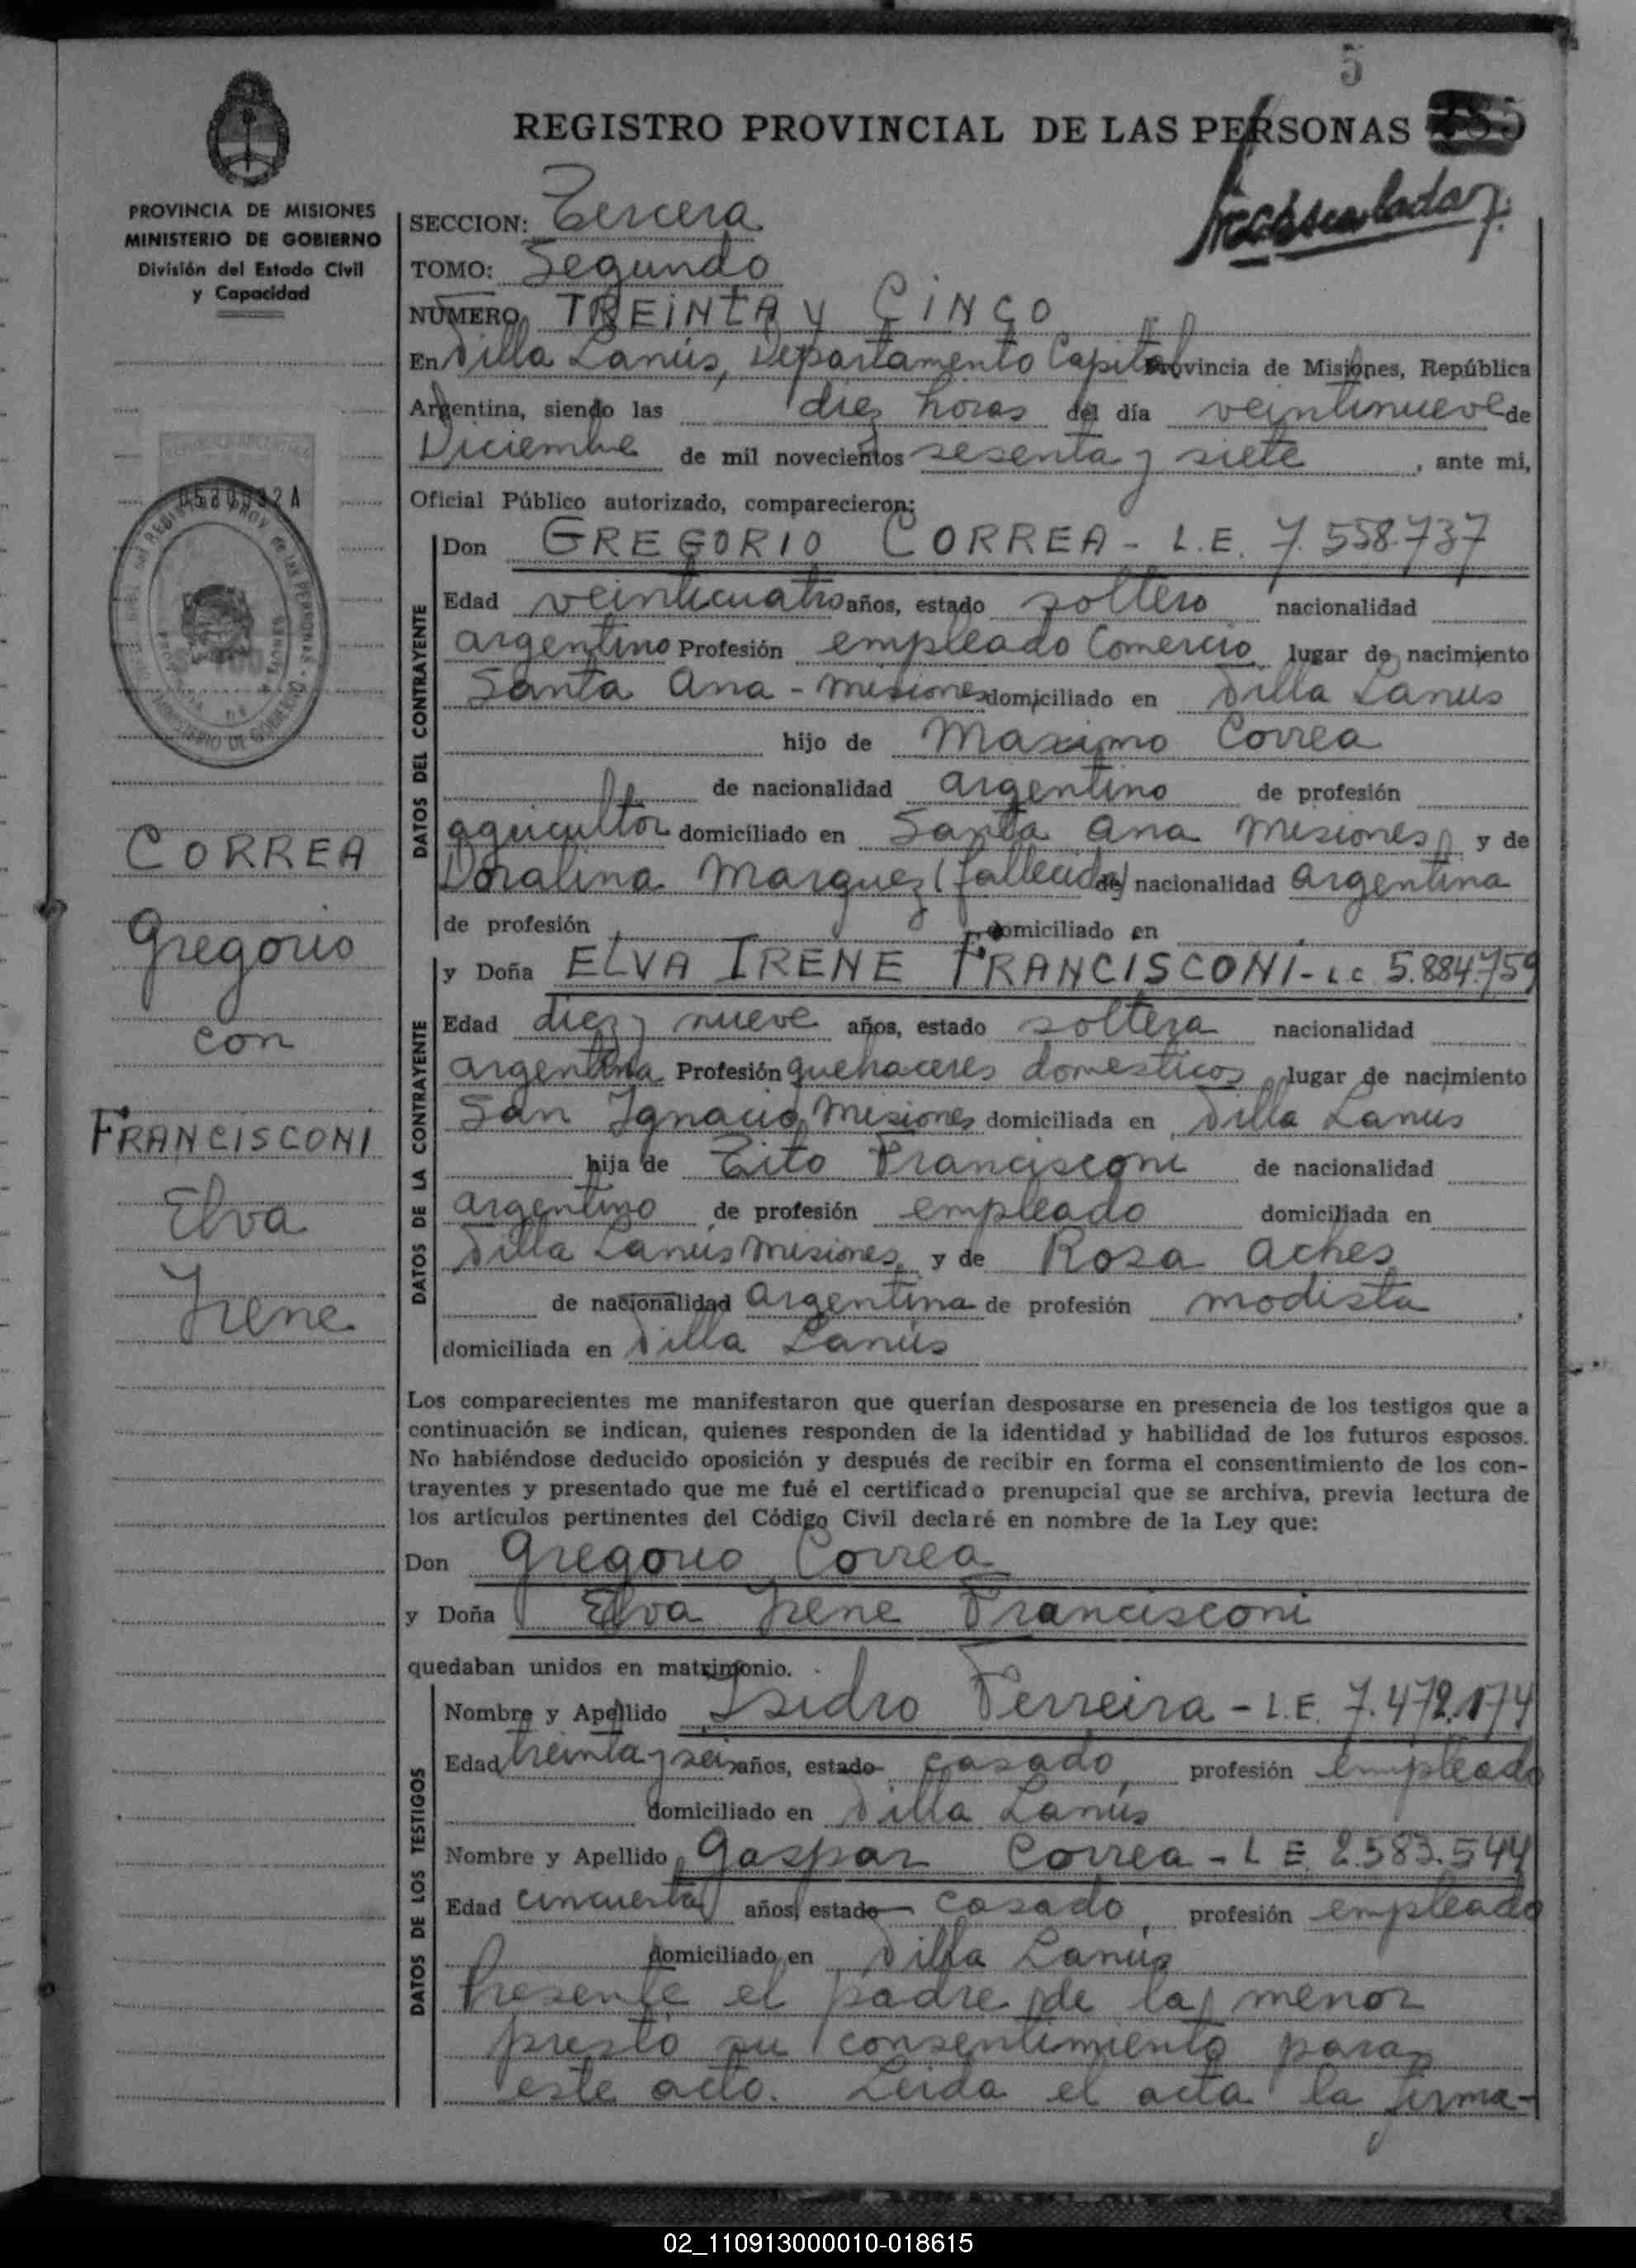 5
REGISTRO PROVINCIAL DE LAS PERSONAS
PROVINCIA DE MISIONES
MINISTERIO DE GOBIERNO
División del Estado Civil
y Capacidad
CORREA
Gregorio
con
FRANCISCONI
Elva
Irene
SECCION: Tercera
TOMO: Segundo
NUMERO TREINTA y CINCO
En Villa Lanús, Departamento Capital Provincia de Misiones, República
Argentina, siendo las diez horas del día veintinueve de
Diciembre de mil novecientos sesenta y siete, ante mi,
Oficial Público autorizado, comparecieron:
DATOS DEL CONTRAYENTE
Don GREGORIO CORREA - L.E. 7.558.737
Edad veinticuatro años, estado soltero nacionalidad
argentino Profesión empleado Comercio lugar de nacimiento
Santa Ana - Misiones domiciliado en Villa Lanus
hijo de Maximo Correa
de nacionalidad argentino de profesión
agricultor domiciliado en Santa Ana Misiones y de
Doralina Marquez (fallecida) de nacionalidad argentina
de profesión domiciliado en
DATOS DE LA CONTRAYENTE
y Doña ELVA IRENE FRANCISCONI - L.C 5.884.759
Edad diez y nueve años, estado soltera nacionalidad
argentina Profesión quehaceres domesticos lugar de nacimiento
San Ignacio Misiones domiciliada en Villa Lanus
hija de Tito Francisconi de nacionalidad
argentino de profesión empleado domiciliada en
Villa Lanus Misiones y de Rosa Aches
de nacionalidad argentina de profesión modista
domiciliada en Villa Lanús
Los comparecientes me manifestaron que querían desposarse en presencia de los testigos que a
continuación se indican, quienes responden de la identidad y habilidad de los futuros esposos.
No habiéndose deducido oposición y después de recibir en forma el consentimiento de los con-
trayentes y presentado que me fué el certificado prenupcial que se archiva, previa lectura de
los artículos pertinentes del Código Civil declaré en nombre de la Ley que:
Don Gregorio Correa
y Doña Elva Irene Francisconi
quedaban unidos en matrimonio.
DATOS DE LOS TESTIGOS
Nombre y Apellido Isidro Ferreira - L.E. 7.472.174
Edad treinta y seis años, estado casado, profesión empleado
domiciliado en Villa Lanús
Nombre y Apellido Gaspar Correa - L E. 2.583.544
Edad cincuenta años, estado casado, profesión empleado
domiciliado en Villa Lanús
Presente el padre de la menor
prestó su consentimiento para
este acto. Leida el acta la firma-
02_110913000010-018615